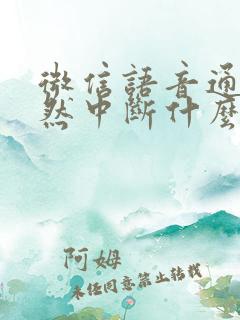 微信語音通
然中斷什麼
阿姆
未经同意禁止转载